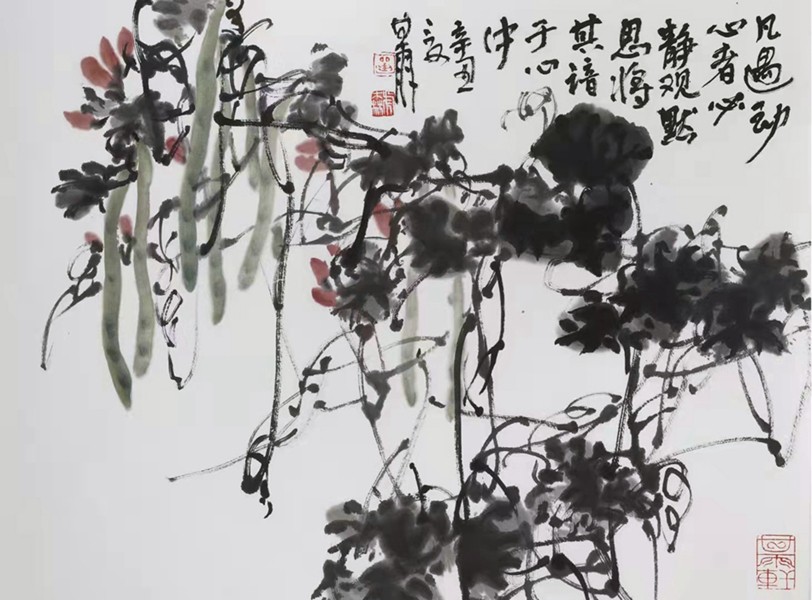 凡遇动
心者必
静观默
思将
其谙
于心
中
辛丑